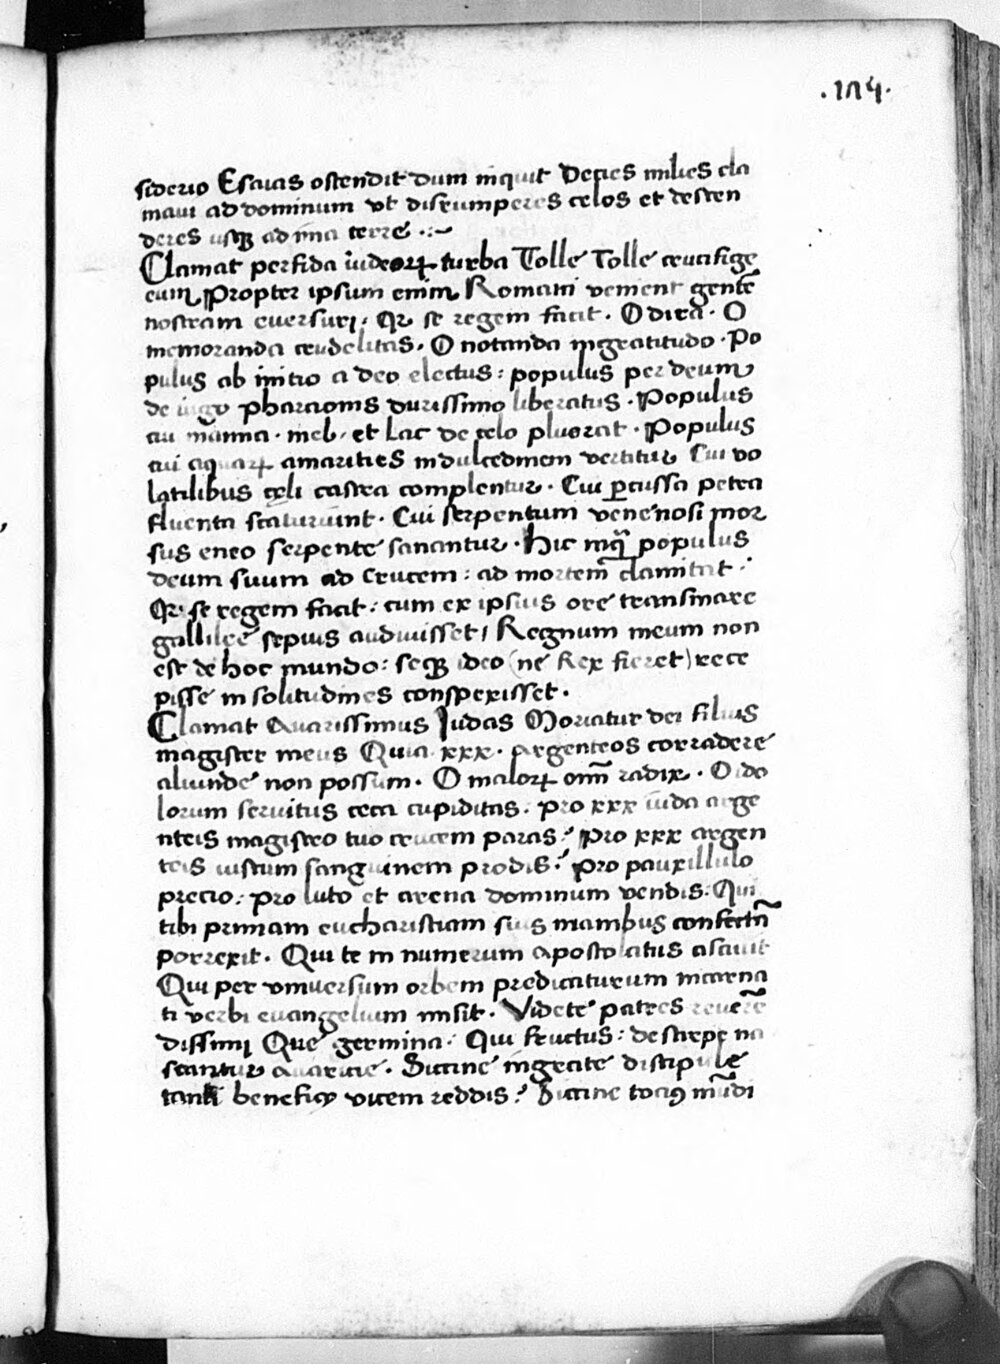 .114.
siderio Esaias ostendit dum inquit Decies milies cla
maui ad dominum vt disrumperes celos et descen
deres usqȝ ad ima terre .:~
Clamat perfida iudeoꝝ turba Tolle Tolle crucifige
eum Propter ipsum enim Romani venient gentē
nostram euersuri. Qr se regem facit. O dira. O
memoranda crudelitas. O notanda ingratitudo. Po
pulus ab initio a deo electus: populus per deum
de iugo pharaonis durissimo liberatus. Populus
cui manna. mel, et lac de celo pluorat. Populus
cui aquaꝝ amarities in dulcedinem vertitur Cui vo
latilibus cęli castra complentur. Cui ꝑcussa petra
fluenta scaturiunt. Cui serpentum venenosi mor
sus eneo serpente sanantur. Hic inqͣ populus
deum suum ad crucem: ad mortem clamitat:
Qr se regem facit: cum ex ipsius ore transmare
gallileę sepius audiuisset/ Regnum meum non
est de hoc mundo: seqȝ ideo (ne Rex fieret) rece
pisse in solitudines conspexisset.
Clamat Auarissimus Iudas Moriatur dei filius
magister meus Quia xxx. argenteos corradere
aliunde non possum. O maloꝝ om̄ radix. O ido
lorum seruitus ceca cupiditas. pro xxx iuda arge
nteis magistro tuo crucem paras? Pro xxx argen
teis iustum sanguinem prodis? Pro pauxillulo
precio: pro luto et arena dominum vendis: Qui
tibi primam eucharistiam suis manibus confectā
porrexit. Qui te in numerum apostolatus asciuit
Qui per vniuersum orbem predicaturum incarna
ti verbi euangelium misit. Videte patres reuerē
dissimi Que germina: Qui fructus: de stirpe na
scantur auaricie. Siccine ingrate discipule
tanti beneficij vicem reddis? Siccine tociꝰ mūdi